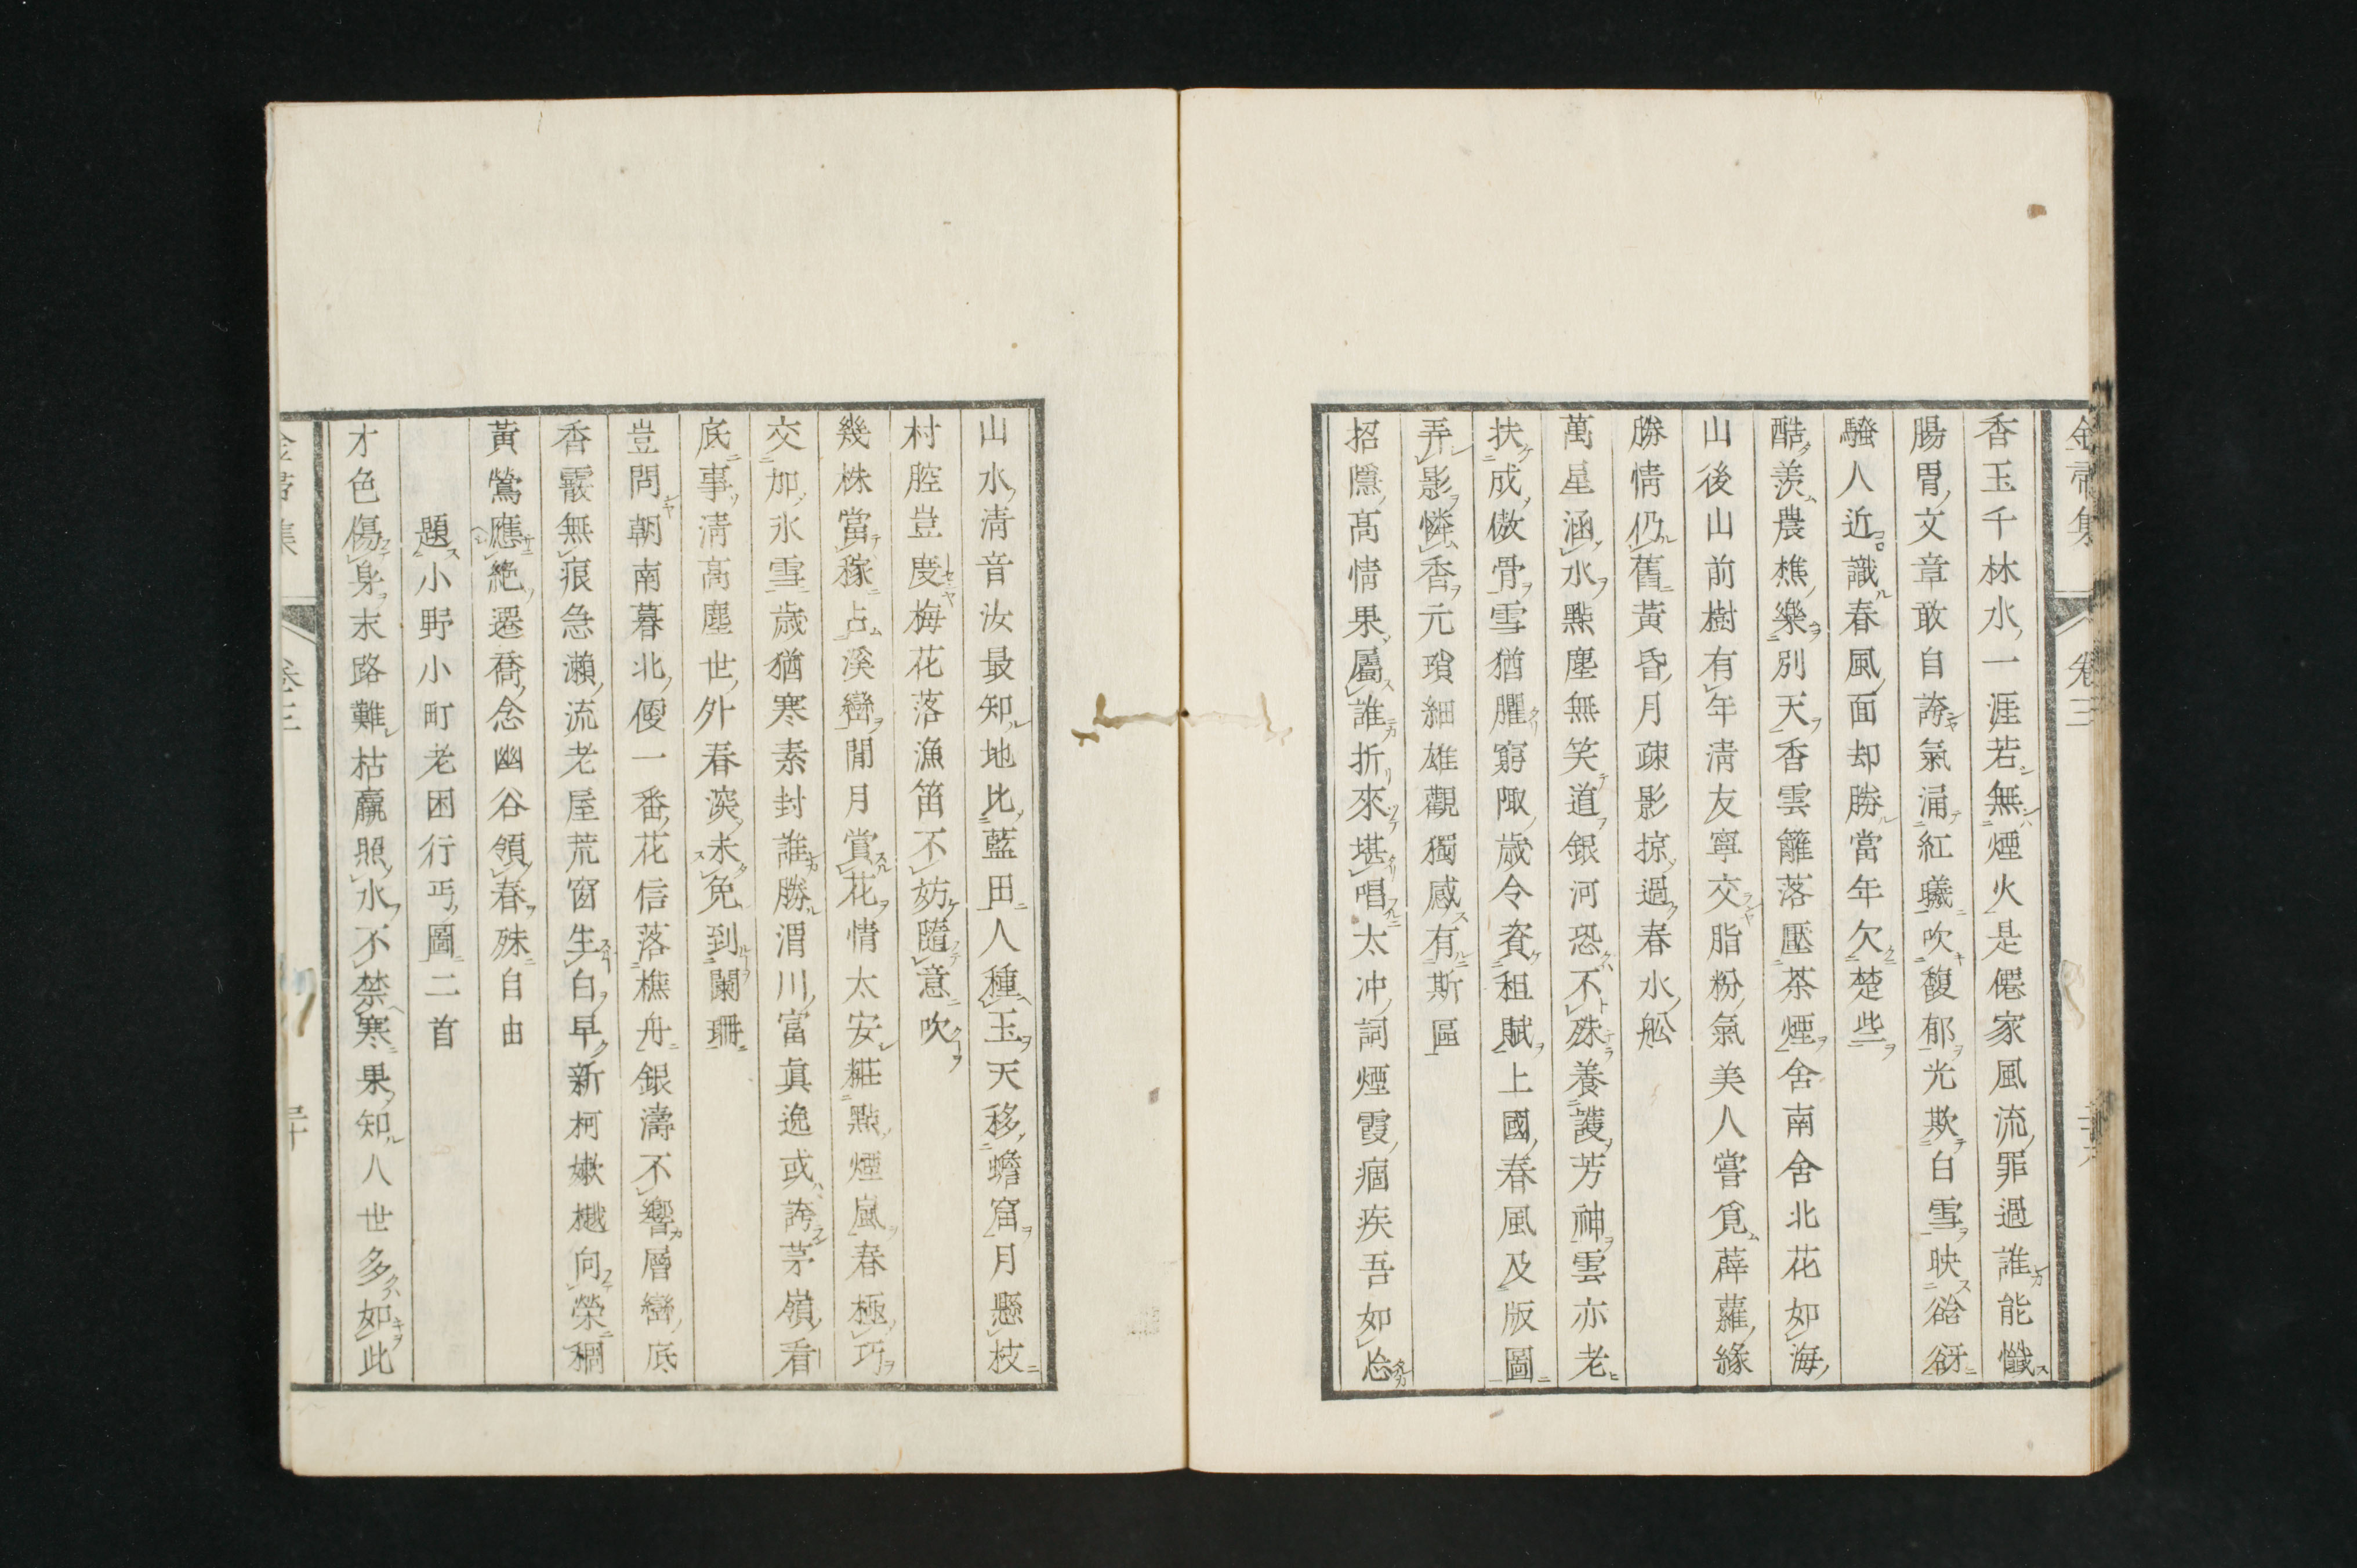 香玉千林水一涯若無煙火是僊家風流罪過誰能懺
腸胃文章敢自誇氣涌紅曦吹馥郁光欺白雪映谽谺
騷人近識春風面却勝當年欠楚些
酷羨農樵樂別天香雲籬落壓茶煙舍南舍北花如海
山後山前樹有年清友寧交脂粉氣美人嘗覓薜蘿緣
勝情仍舊黃昏月疎影掠過春水舩
萬星涵水點塵無笑道銀河恐不殊養護芳神雲亦老
扶成傲骨雪猶臞窮陬歲令資租賦上國春風及版圖
弄影憐香元瑣細雄觀獨感有斯區
招隱高情果屬誰折來堪唱太冲詞煙霞痼疾吾如
山水清音汝最知地比藍田人種玉天移蟾窟月懸枝
村腔豈度梅花落漁笛不妨隨意吹
幾株當稼占溪巒閒月賞花情太安糚點煙嵐春極巧
交加氷雪歲猶寒素封誰勝渭川富眞逸或誇茅嶺看
底事清高塵世外春深未免到闌珊
豈問朝南暮北偃一番花信落樵舟銀濤不響層巒底
香霰無痕急瀨流老屋荒窗生白早新柯嫩樾向榮稠
黃鶯應絶遷喬念幽谷領春殊自由
題小野小町老困行丐圖二首
才色傷身末路難枯羸照水不禁寒果知人世多如此
金
集
卷三
集
卷三
三十